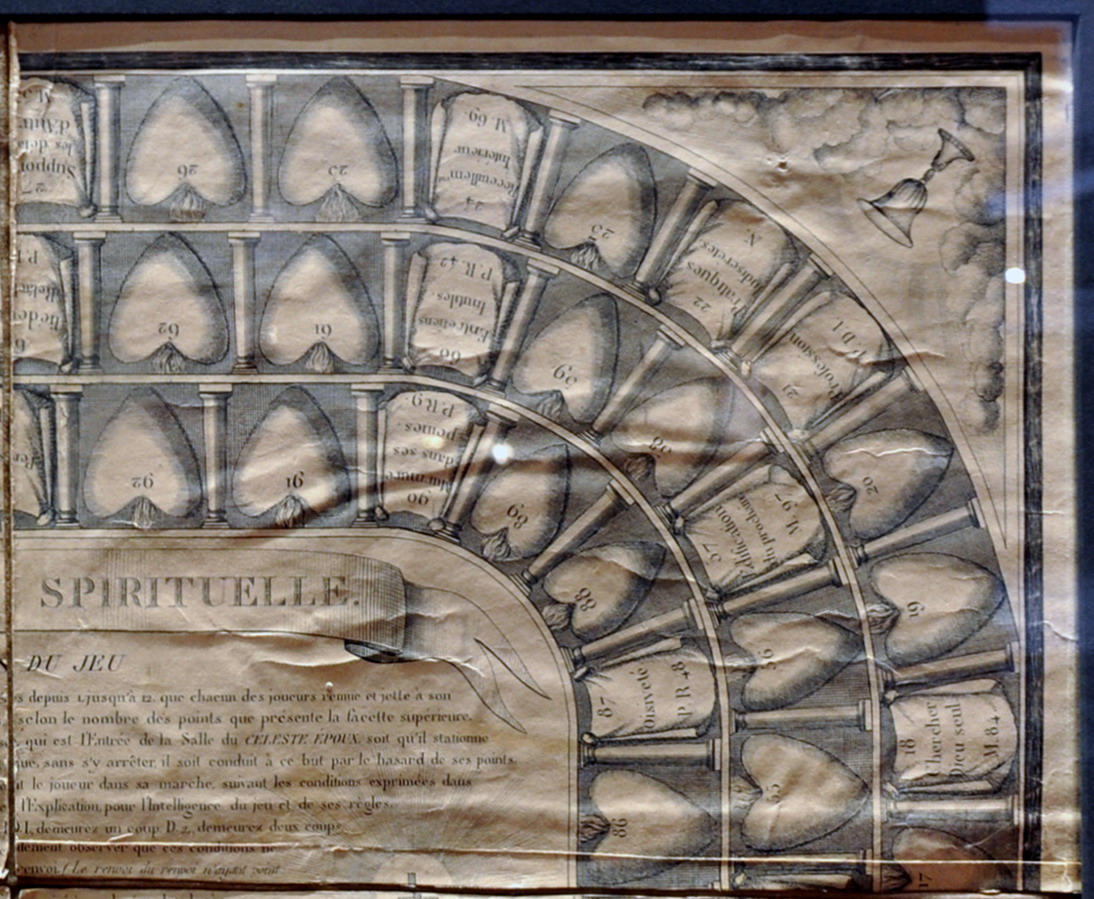 SPIRITUELLE.
DU JEU
depuis 1, jusqu'à 12. que chacun des joueurs remue et jette à son
selon le nombre des points que présente la facette supérieure.
qui est l'Entrée de la Salle du CELESTE EPOUX. soit qu'il stationne
sans s'y arrêter, il soit conduit à ce but par le hasard de ses points.
le joueur dans sa marche, suivant les conditions exprimées dans
l'Explication, pour l'Intelligence du jeu et de ses règles.
demeurez un coup D. 2, demeurez deux coups
observer que ces conditions ne
renvoi (Le renvoi du renvoi n'ayant point
17
18
Chercher
Dieu seul
M. 84
19
20
21
Profession
P. D. 1
22
Pratiques
indiscretes
N.
23
24
Intérieur
M. 69.
25
26
27
Support
55
56
57
Edification
du prochain
M. 97
58
59
60
Entretiens
Inutiles.
P. R. 42
61
62
86
87
Oisiveté
P. R. 48
88
89
90
dans ses
peines
P. R. 9.
91
92